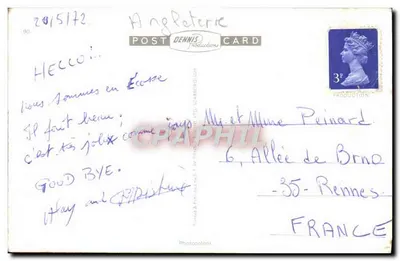 20/5/72
Angleterie
POST CARD
DENNIS
Productions
HELLO!..
nous sommes en Écosse
Il fait beau;
c'est très joli comme pays
GOOD BYE.
3P
Mr et Mme Peinard
6, Allée de Brno
-35- Rennes.
FRANCE
CPAPHIL